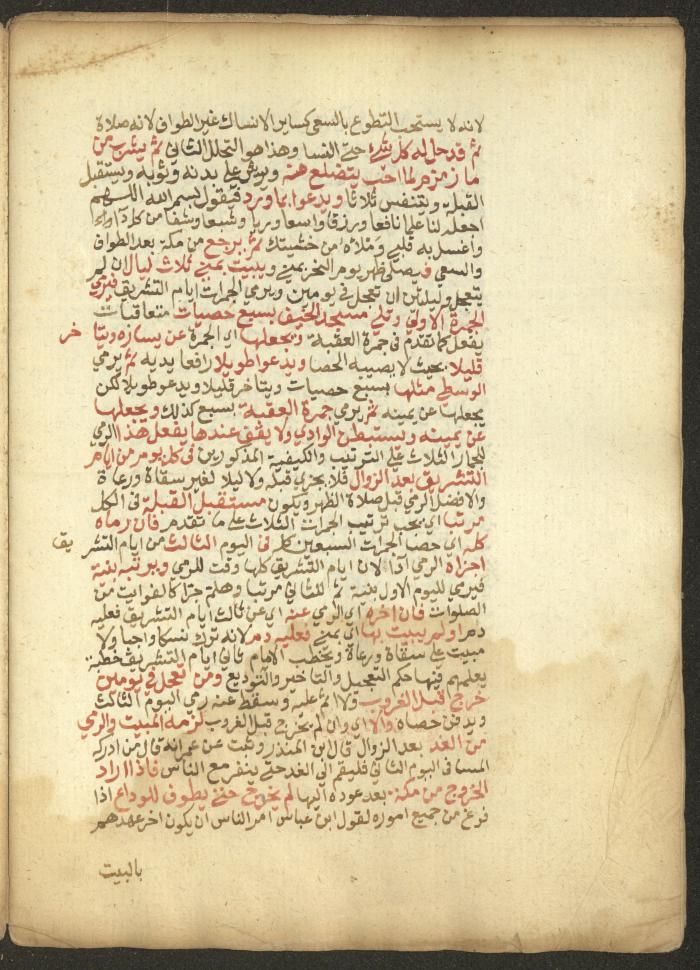 لانه لا يستحب التطوع بالسعي كساير الانساك غير الطواف لانه صلاة
ثم قد حل له كل شي حتي النسا وهذا هو التحلل الثاني ثم يشرب من
ما زمزم لما احب ويتضلع منه ويرش علي بدنه وثوبه ويستقبل
القبلة ويتنفس ثلاثا ويدعوا بما ورد فيقول بسم الله اللهم
اجعله لنا علما نافعا ورزقا واسعا وريا وشبعا وشفا من كل داء
واغسل به قلبي واملاه من خشيتك ثم يرجع من مكة بعد الطواف
والسعي فيصلي ظهر يوم النحر بمني ويبيت بمني ثلاث ليال ان لم
يتعجل وليلتين ان تعجل في يومين ويرمي الجمرات ايام التشريق فيرمي
الجمرة الاولي وتلي مسجد الخيف بسبع حصيات متعاقبات
يفعل كما تقدم في جمرة العقبة ويجعلها اي الجمرة عن يساره ويتاخر
قليلا بحيث لا يصيبه الحصا ويدعوا طويلا رافعا يديه ثم يرمي
الوسطي مثلها بسبع حصيات ويتاخر قليلا ويدعو طويلا لكن
يجعلها عن يمينه ثم يرمي جمرة العقبة بسبع كذلك ويجعلها
عن يمينه ويستبطن الوادي ولا يقف عندها يفعل هذا الرمي
للجمار الثلاث علي الترتيب والكيفية المذكورين في كل يوم من ايام
التشريق بعد الزوال فلا يجزي قبله ولا ليلا لغير سقاة ورعاة
والافضل الرمي قبل صلاة الظهر ويكون مستقبل القبلة في الكل
مرتبا اي يجب ترتيب الجمرات الثلاث علي ما تقدم فان رماه
كله اي حصا الجمرات السبعين كله في اليوم الثالث من ايام التشريق
اجزاه الرمي ادا لان ايام التشريق كلها وقت للرمي ويرتبه بنية
فيرمي لليوم الاول بنية ثم للثاني مرتبا وهلم جرا كالفوايت من
الصلوات فان اخره اي الرمي عنه اي عن ثالث ايام التشريق فعليه
دم او لم يبيت بها اي بمني فعليه دم لانه ترك نسكا واجبا ولا
مبيت علي سقاة ورعاة ويخطب الامام ثاني ايام التشريق خطبة
يعلمهم فيها حكم التعجيل والتاخير والتوديع ومن تعجل في يومين
خرج قبل الغروب ولا اثم عليه وسقط عنه رمي اليوم الثالث
ويدفن حصاه والا اي وان لم يخرج قبل الغروب لزمه المبيت والرمي
من الغد بعد الزوال قال ابن المنذر وثبت عن عمر انه قال من ادركه
المسا في اليوم الثاني فليقم الي الغد حتي ينفر مع الناس فاذا اراد
الخروج من مكة بعد عوده اليها لم يخرج حتي يطوف للوداع اذا
فرغ من جميع اموره لقول ابن عباس امر الناس ان يكون اخر عهدهم
بالبيت